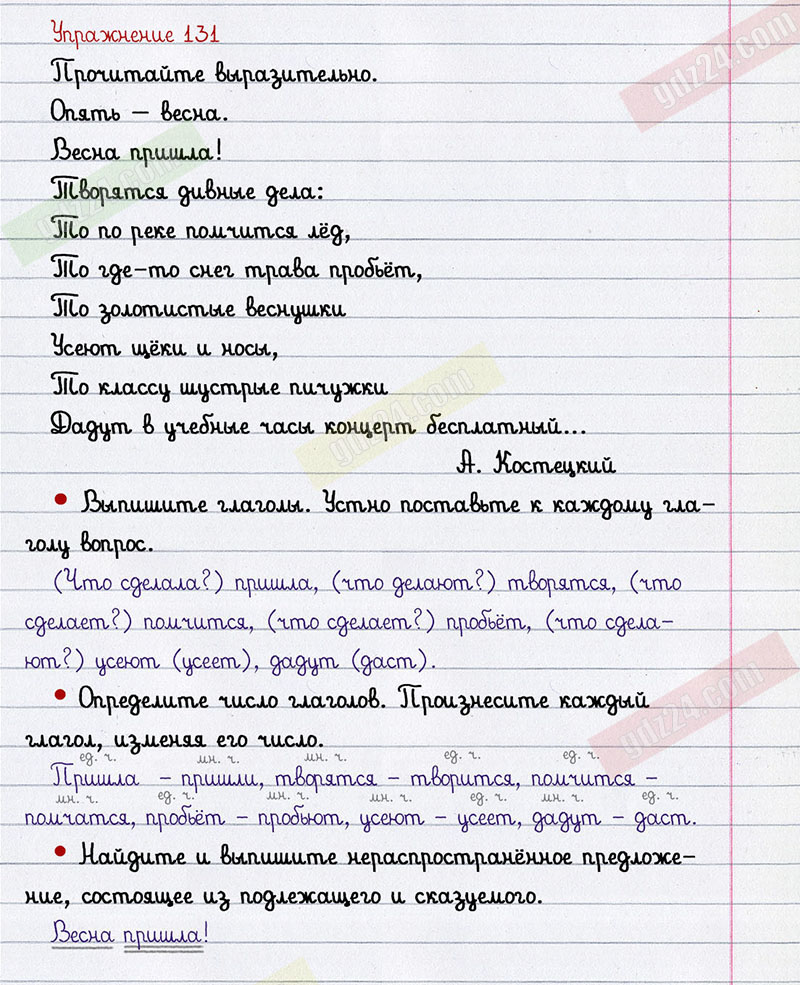 Упражнение 131
Прочитайте выразительно.
Опять – весна.
Весна пришла!
Творятся дивные дела:
То по реке помчится лёд,
То где-то снег трава пробьёт,
То золотистые веснушки
Усеют щёки и носы,
То классу шустрые пичужки
Дадут в учебные часы концерт бесплатный...
А. Костецкий
• Выпишите глаголы. Устно поставьте к каждому гла-
голу вопрос.
(Что сделала?) пришла, (что делают?) творятся, (что
сделает?) помчится, (что сделает?) пробьёт, (что сдела-
ют?) усеют (усеет), дадут (даст).
• Определите число глаголов. Произнесите каждый
глагол, изменяя его число.
ед. ч. мн. ч. мн. ч. ед. ч. ед. ч.
Пришла – пришли, творятся – творится, помчится –
мн. ч. ед. ч. мн. ч. мн. ч. ед. ч. мн. ч. ед. ч.
помчатся, пробьёт – пробьют, усеют – усеет, дадут – даст.
• Найдите и выпишите нераспространённое предложе-
ние, состоящее из подлежащего и сказуемого.
Весна пришла!
gdz24.com
gdz24.com
gdz24.com
gdz24.com